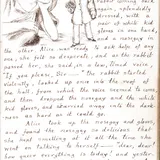 coming back
again, splendidly
dressed, with a
pair of white kid
gloves in one hand
and a nosegay in
the other. Alice was ready to ask help of any
one, she felt so desperate, and as the rabbit
passed her, she said, in a low, timid voice,
"If you please, Sir—" the rabbit started
violently, looked up once into the roof of
the hall, from which the voice seemed to come
and then dropped the nosegay and the white
kid gloves, and skurried away into the dark-
ness as hard as it could go.
Alice took up the nosegay and gloves,
and found the nosegay so delicious that
she kept smelling at it all the time she
went on talking to herself— "dear, dear!
how queer everything is today! and yester-